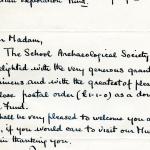 Exploration Fund.
r Madam,
The School Archaeological Society
elighted with the very generous grant
cimens and with the greatest of pleas
lose postal order (£1-1-0) as a dona
Fund.
hall be very pleased to welcome you a
, if you would care to visit our Mu
in thanking you.